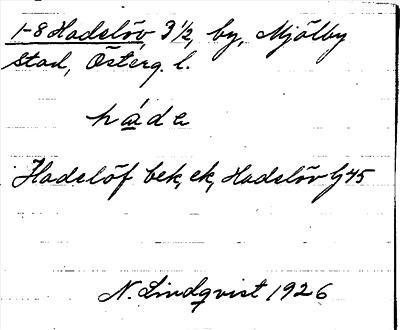 1-8 Hadelöv 3 1/2, by, Mjölby
stad, Österg. l.
håde
Hadelöf bek, ek, Hadelöv G 45
N. Lindqvist 1926